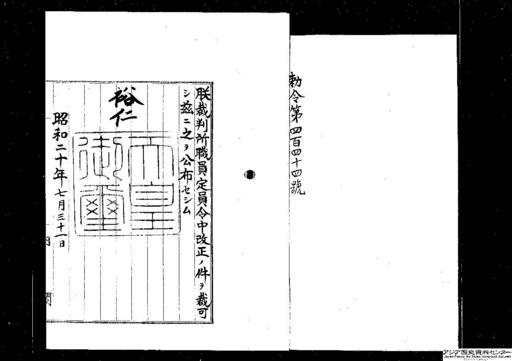 勅令第四百四十四號
朕裁判所職員定員令中改正ノ件ヲ裁可
シ玆ニ之ヲ公布セシム
裕仁
天皇
御璽
昭和二十年七月三十一日
アジア歴史資料センター